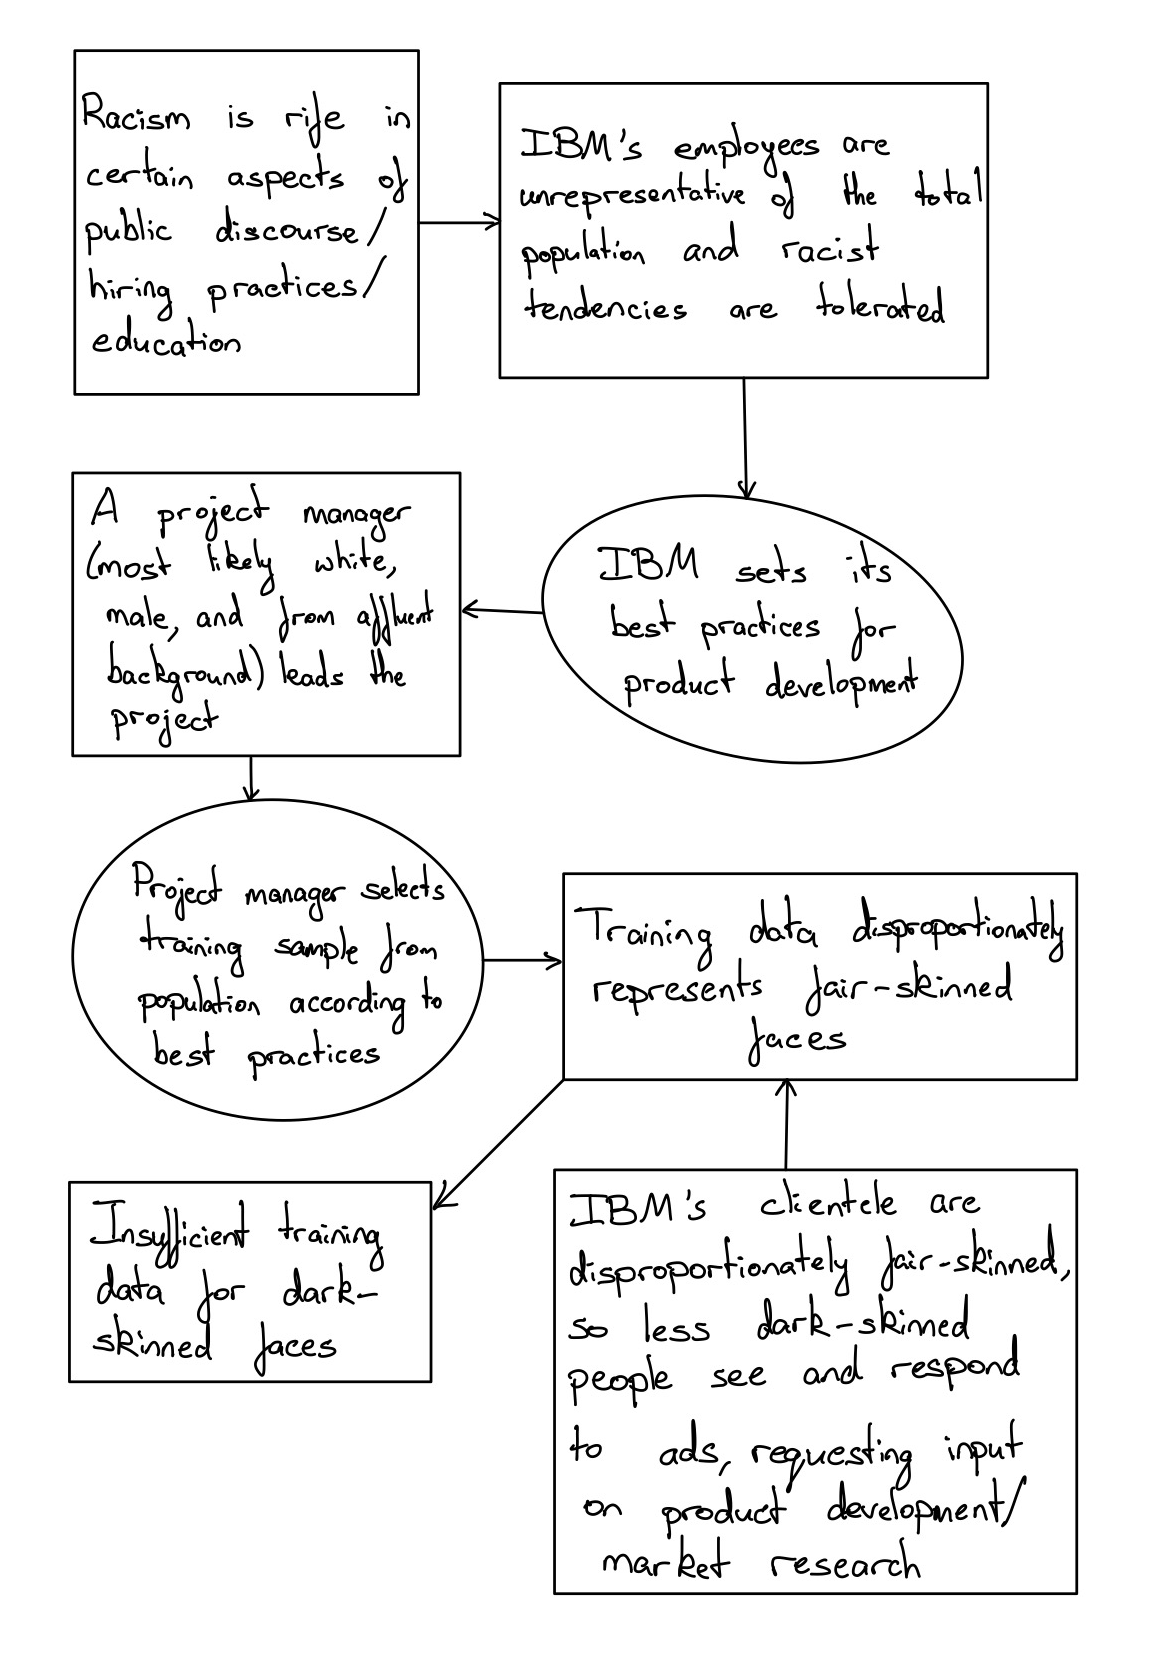 Racism is rife in
certain aspects of
public discourse/
hiring practices/
education
IBM's employees are
unrepresentative of the total
population and racist
tendencies are tolerated
IBM sets its
best practices for
product development
A project manager
(most likely white,
male, and from affluent
background) leads the
project
Project manager selects
training sample from
population according to
best practices
Training data disproportionately
represents fair-skinned
faces
Insufficient training
data for dark-
skinned faces
IBM's clientele are
disproportionately fair-skinned,
so less dark-skinned
people see and respond
to ads, requesting input
on product development/
market research